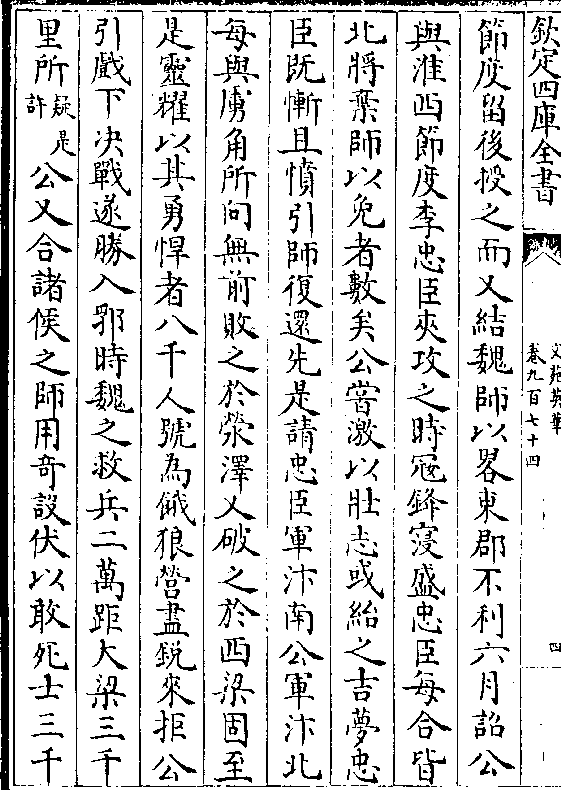 欽定四庫全書
文苑英華
卷九百七十四
四
節度留後授之而又結魏師以畧東郡不利六月詔公
與淮西節度李忠臣夾攻之時冦鋒寖盛忠臣每合皆
北將棄師以免者數矣公嘗激以壯志或紿之吉夢忠
臣既慚且憤引師復還先是請忠臣軍汴南公軍汴北
每與虜角所向無前敗之於滎澤又破之於西梁固至
是靈耀以其勇悍者八千人號為餓狼營盡鋭來拒公
引戲下決戰遂勝入郛時魏之救兵二萬距大梁三千
里所疑是許公又合諸侯之師用竒設伏以敢死士三千